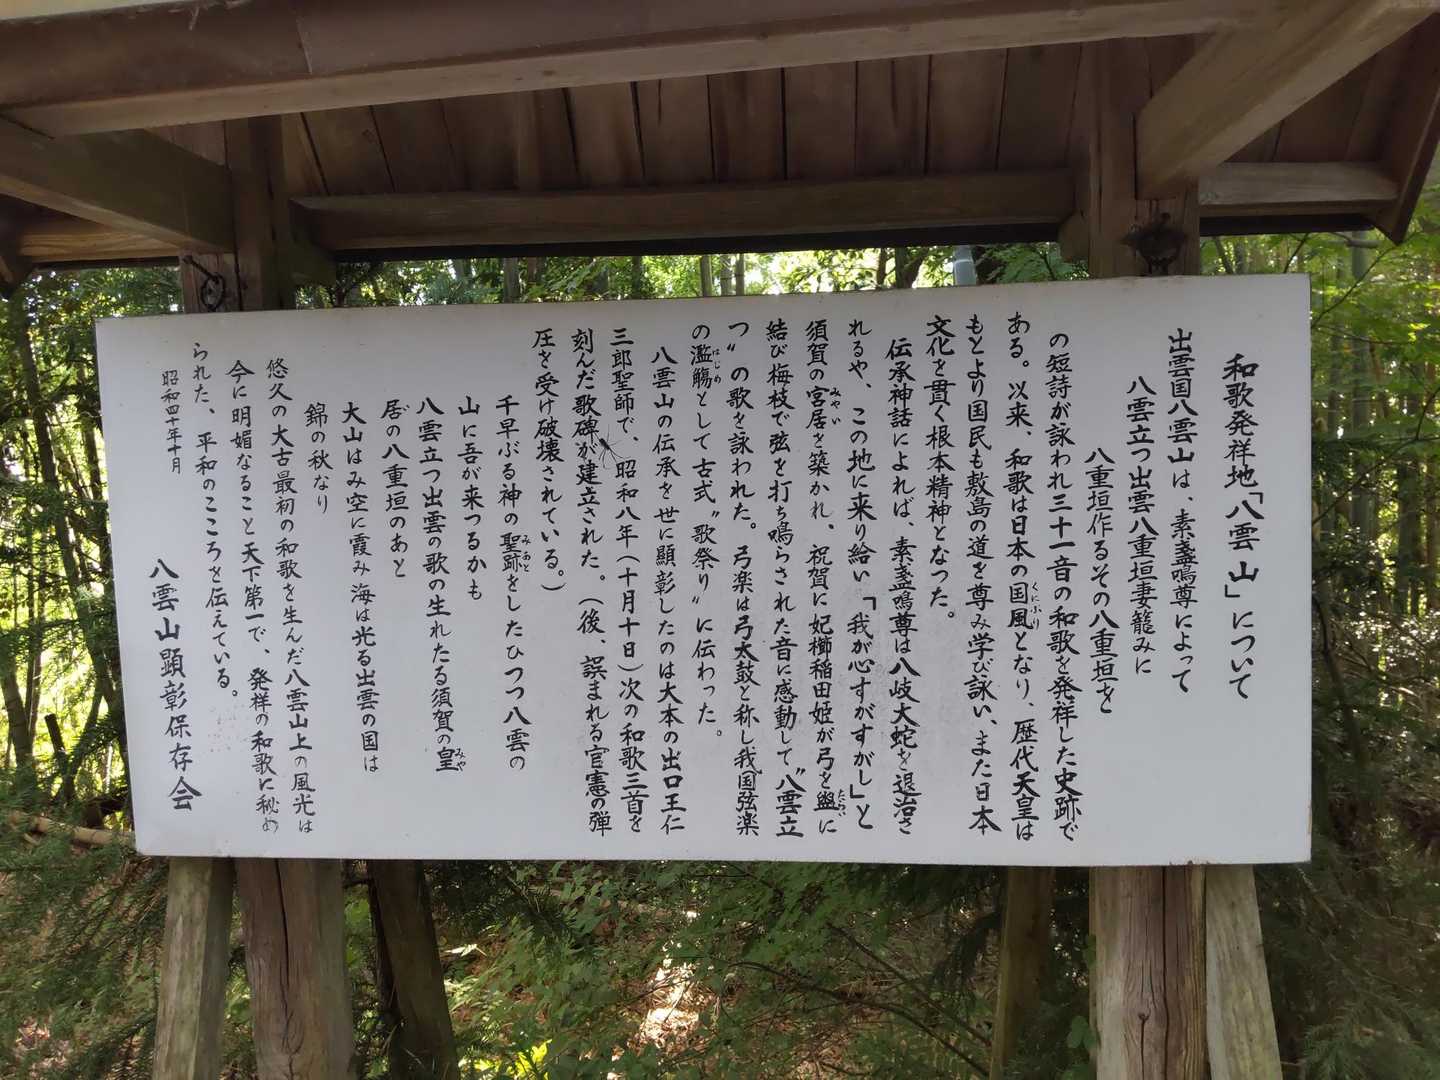 和歌発祥地「八雲山」について
出雲国八雲山は、素盞鳴尊によって
八雲立つ出雲八重垣妻籠みに
八重垣作るその八重垣を
の短詩が詠われ三十一音の和歌を発祥した史跡で
ある。以来、和歌は日本の国風となり、歴代天皇は
くにぶり
もとより国民も敷島の道を尊み学び詠い、また日本
文化を貫く根本精神となった。
伝承神話によれば、素盞鳴尊は八岐大蛇を退治さ
れるや、この地に来り給い「我が心すがすがし」と
須賀の宮居を築かれ、祝賀に妃櫛稲田姫が弓を盥に
みやい
たらい
結び梅枝で弦を打ち鳴らされた音に感動して〝八雲立
つ〟の歌を詠われた。弓楽は弓太鼓と称し我国弦楽
の濫觴として古式〝歌祭り〟に伝わった。
はじめ
八雲山の伝承を世に顕彰したのは大本の出口王仁
三郎聖師で、昭和八年(十月十日)次の和歌三首を
刻んだ歌碑が建立された。(後、誤まれる官憲の弾
圧を受け破壊されている。)
千早ぶる神の聖跡をしたひつつ八雲の
みあと
山に吾が来つるかも
八雲立つ出雲の歌の生れたる須賀の皇
みや
居の八重垣のあと
大山はみ空に霞み海は光る出雲の国は
錦の秋なり
悠久の大古最初の和歌を生んだ八雲山上の風光は
今に明媚なること天下第一で、発祥の和歌に秘め
られた、平和のこころを伝えている。
昭和四十年十月
八雲山顕彰保存会